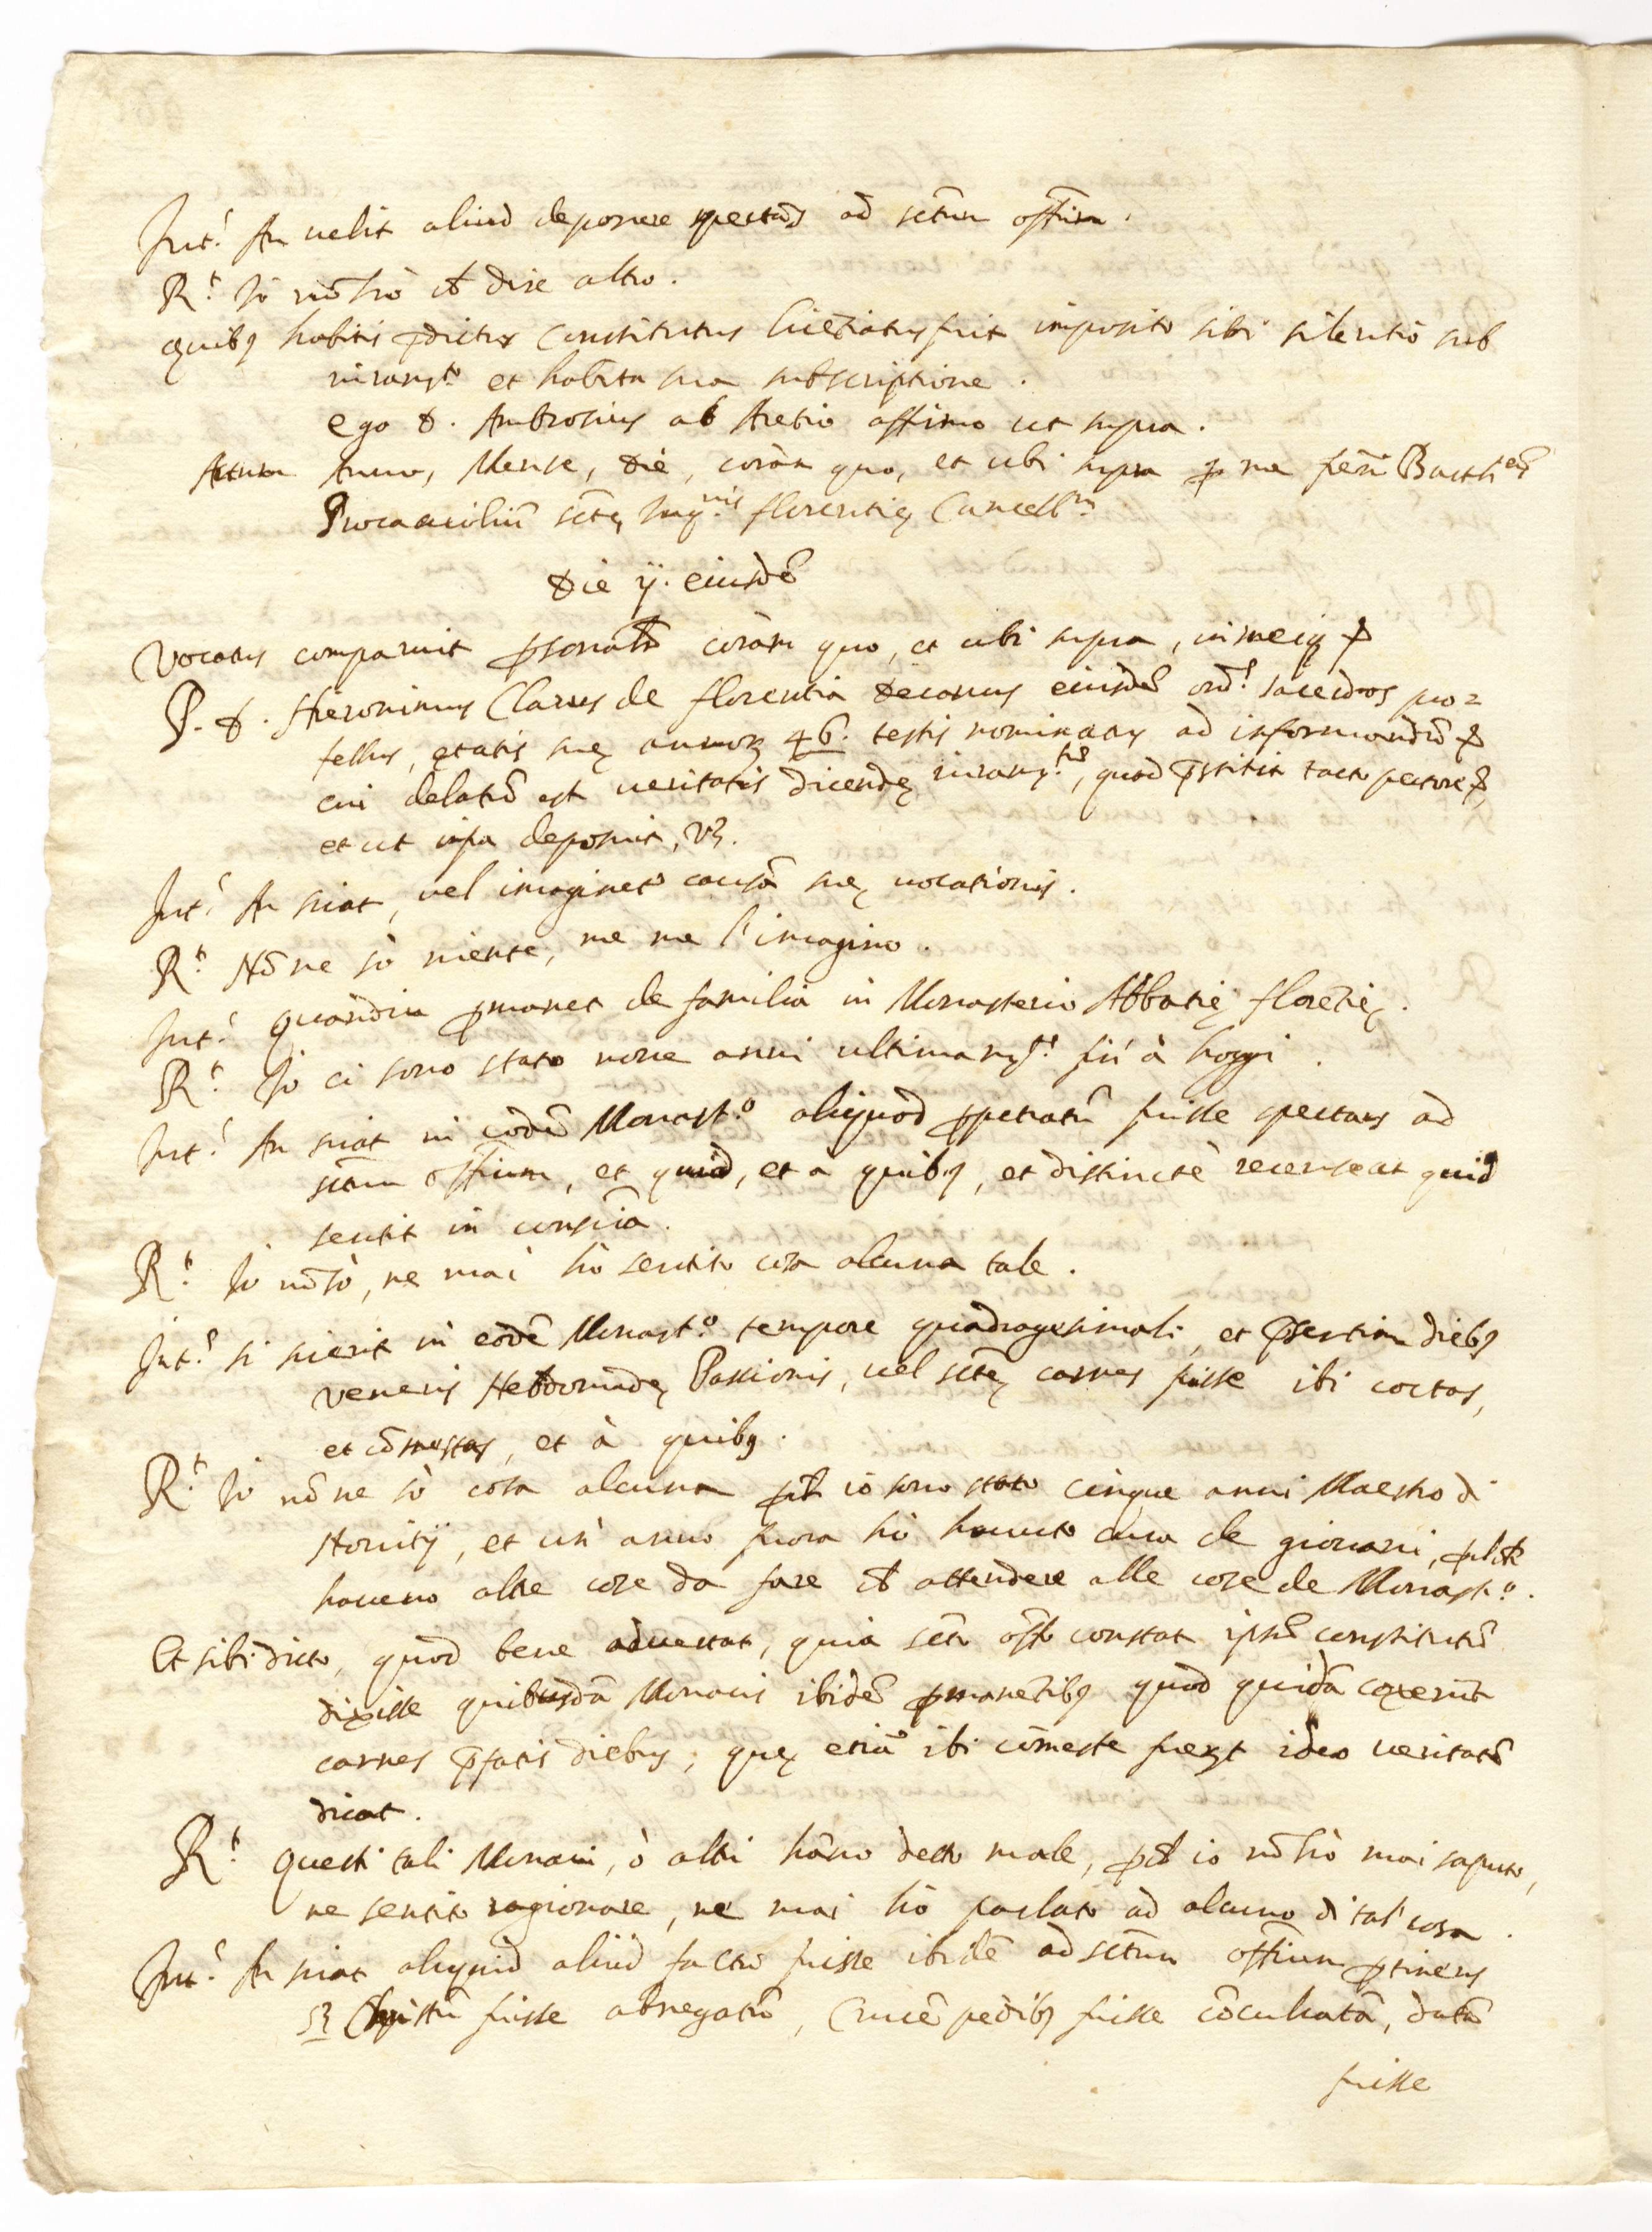 Int.s An uelit aliud deponere spectãs ad sctum offium.
R.t Io nõ hò ch dire altro.
Quibȝ habitis pdictus Constitutus licẽtiatus fuit imposito sibi silentio sub
iuram.to et habita sua subscriptione.
ego D. Ambrosius ab Aretio affirmo ut supra.
Actum Anno, Mense, Die, corãm quo, et ubi supra p me
sctę Inq.nis florentię Cancell.m
Die ij. eiusdẽ
Vocatus comparuit psonalr coràm quo, et ubi supra, in meiq p
P. D. Hieronimus Clarus de florentia Decanus eiusdẽ ord.s sacerdos pro=
fessus, ętatis suę annorȝ 46. testis nominatus ad informandũ p
cui delatũ est ueritatis dicendę iuram.tũ, quod pstitit tacto pectore p
et ut infra deposuit, vȝ.
Int.s An sciat, vel imaginetr causã suę uocationis.
R.t Nõ ne sò niente, ne me l'imagino.
Int.s Quandiu pmanet de familia in Monasterio Abbatię florẽtię.
R.t Io ci sono stato noue anni ultimam.te fin' à hoggi.
Int.s An sciat in eodẽ Monast.o aliquod ppetratũ fuisse spectans ad
sctum offium, et quid, et a quibȝ, et distinctè recenseat quid
sentit in consciã.
R.t Io nõ sò, ne mai hò sentito cosa alcuna tale.
Int.s si scierit in eodẽ Monast.o tempore quadragesimali, et psertim diebȝ
Veneris Hebdomadę Passionis, vel sctę carnes fuisse ibi coctas,
et cõmestas, et à quibȝ.
R.t Io nõ ne sò cosa alcuna pch io sono stato cinque anni Maestro di
Nouitij, et un' anno fuora hò hauuto cura de giouani,
haueuo altre cose da fare ch attendere alle cose de Monast.o.
Et sibi dicto, quod bene aduertat, quia scto offo constat ipsũ constitutũ
dixisse quibusdã Monacis ibidẽ pmanẽtibȝ quod quidã coxerũt
carnes pfatis diebus, quę etiã ibi cõmeste fuerũt ideo ueritatẽ
dicat.
R.t Questi tali Monaci, ò altri hãno detto male, pch io nõ hò mai saputo,
ne sentito ragionare, ne mai hò parlato ad alcuno di tal' cosa.
Int.s An sciat aliquid aliud factũ fuisse ibidẽ ad sctum offium ptinens
sȝ Christũ fuisse abnegatũ, Crucẽ pedibȝ fuisse cõculcatã, datã
fuisse